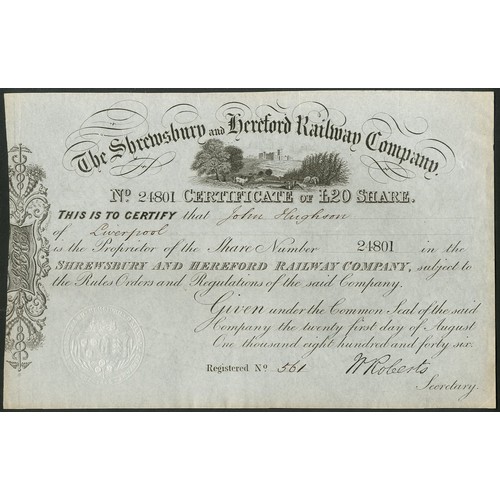 The Shrewsbury and Hereford Railway Company.
No 24801 CERTIFICATE OF £20 SHARE.
THIS IS TO CERTIFY that John Hughson
of Liverpool
is the Proprietor of the Share Number 24801 in the
SHREWSBURY AND HEREFORD RAILWAY COMPANY, subject to
the Rules Orders and Regulations of the said Company.
Given under the Common Seal of the said
Company the twenty first day of August
One thousand eight hundred and forty six.
Registered No 561 W Roberts
Secretary.